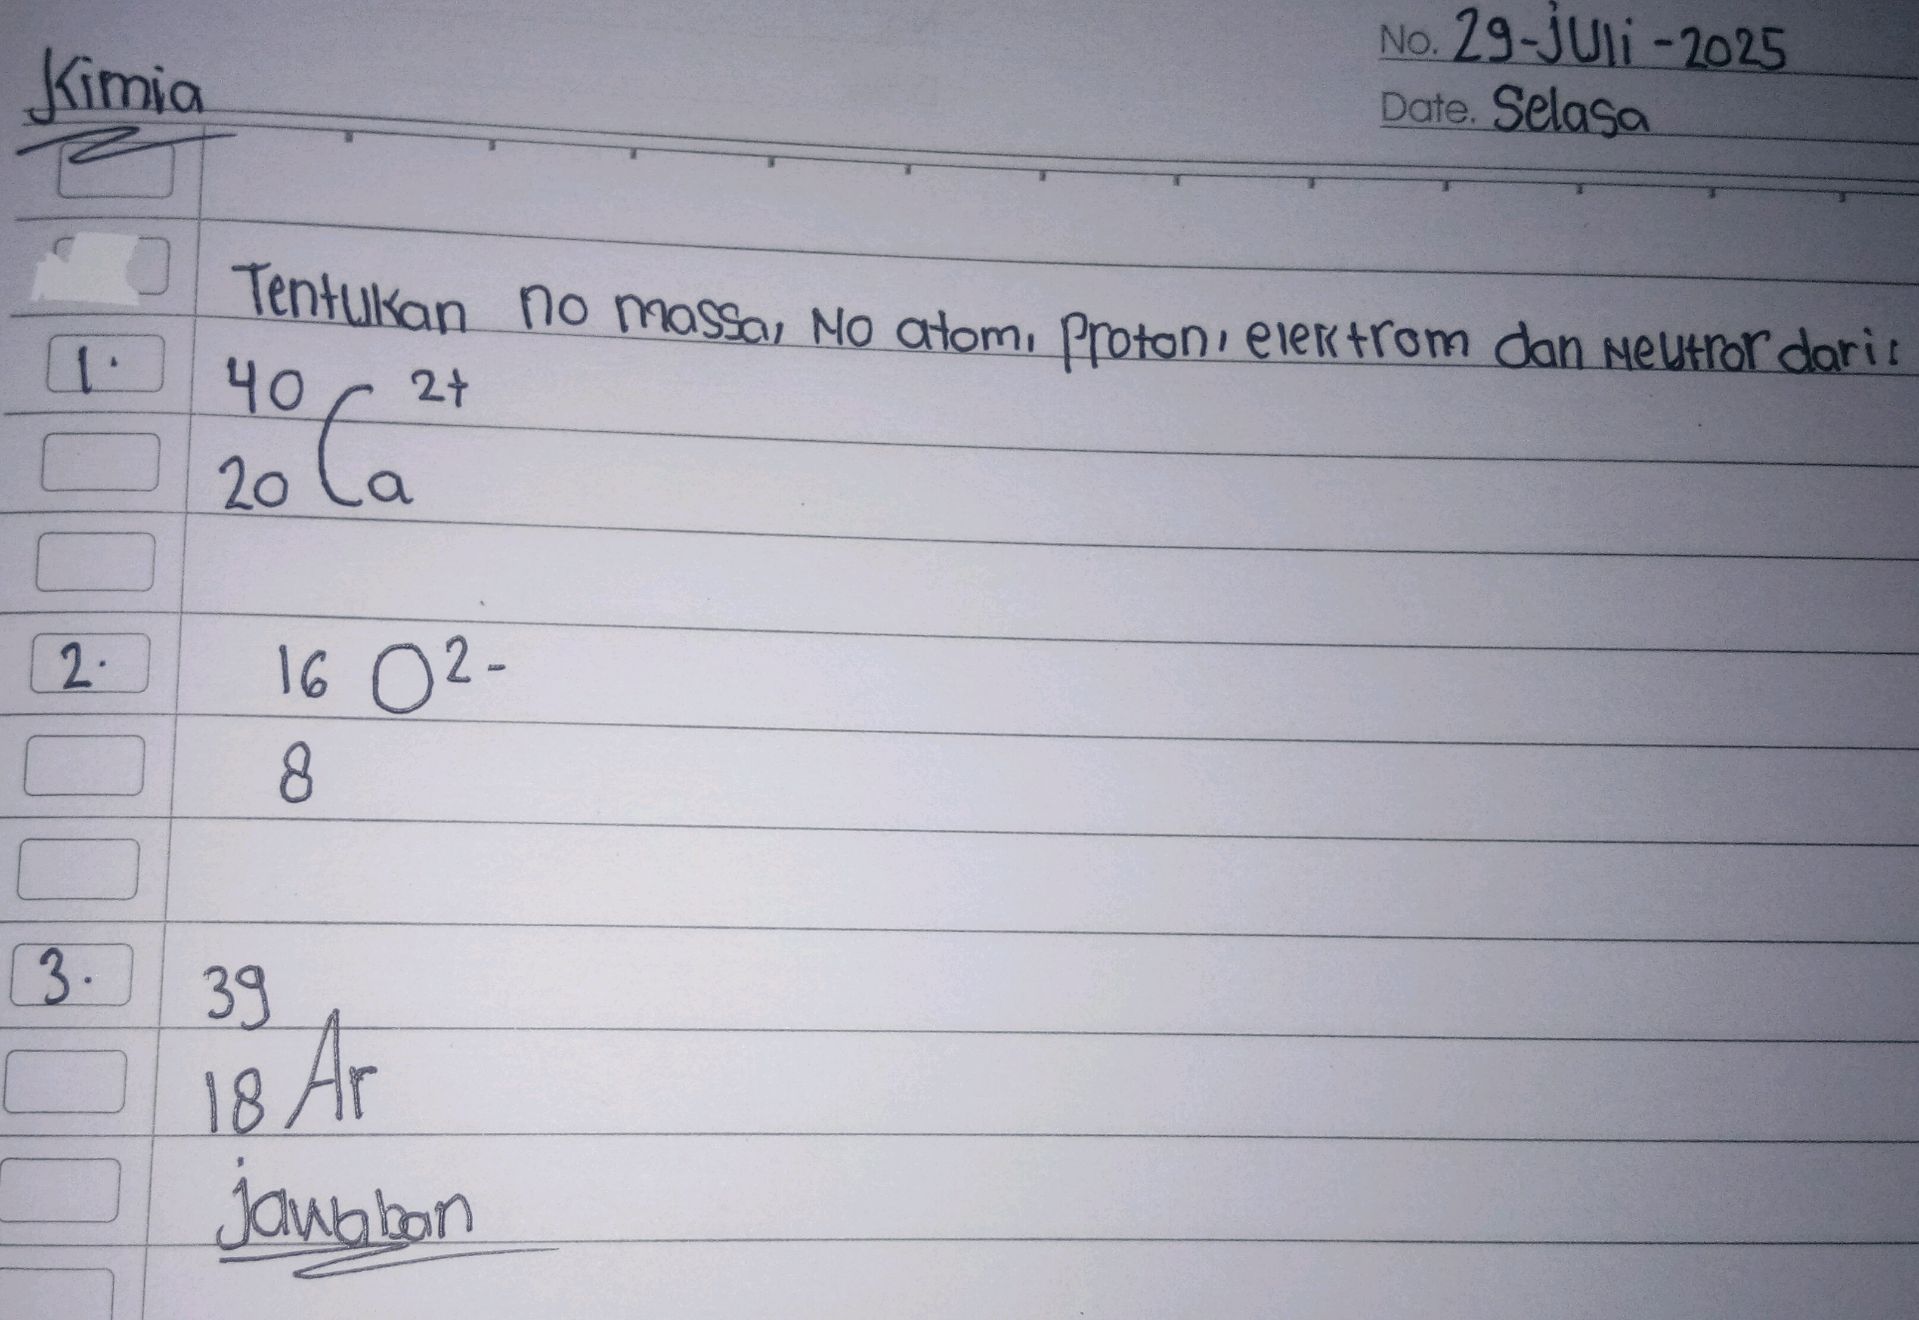 No. 29-juli-2025
Kimia
Date. Selasa
Tentukan no massa, No atom, Proton, elektrom dan Neutror dari:
1. 40 Ca 2+
20
2. 16 O 2-
8
3. 39
18 Ar
jawaban